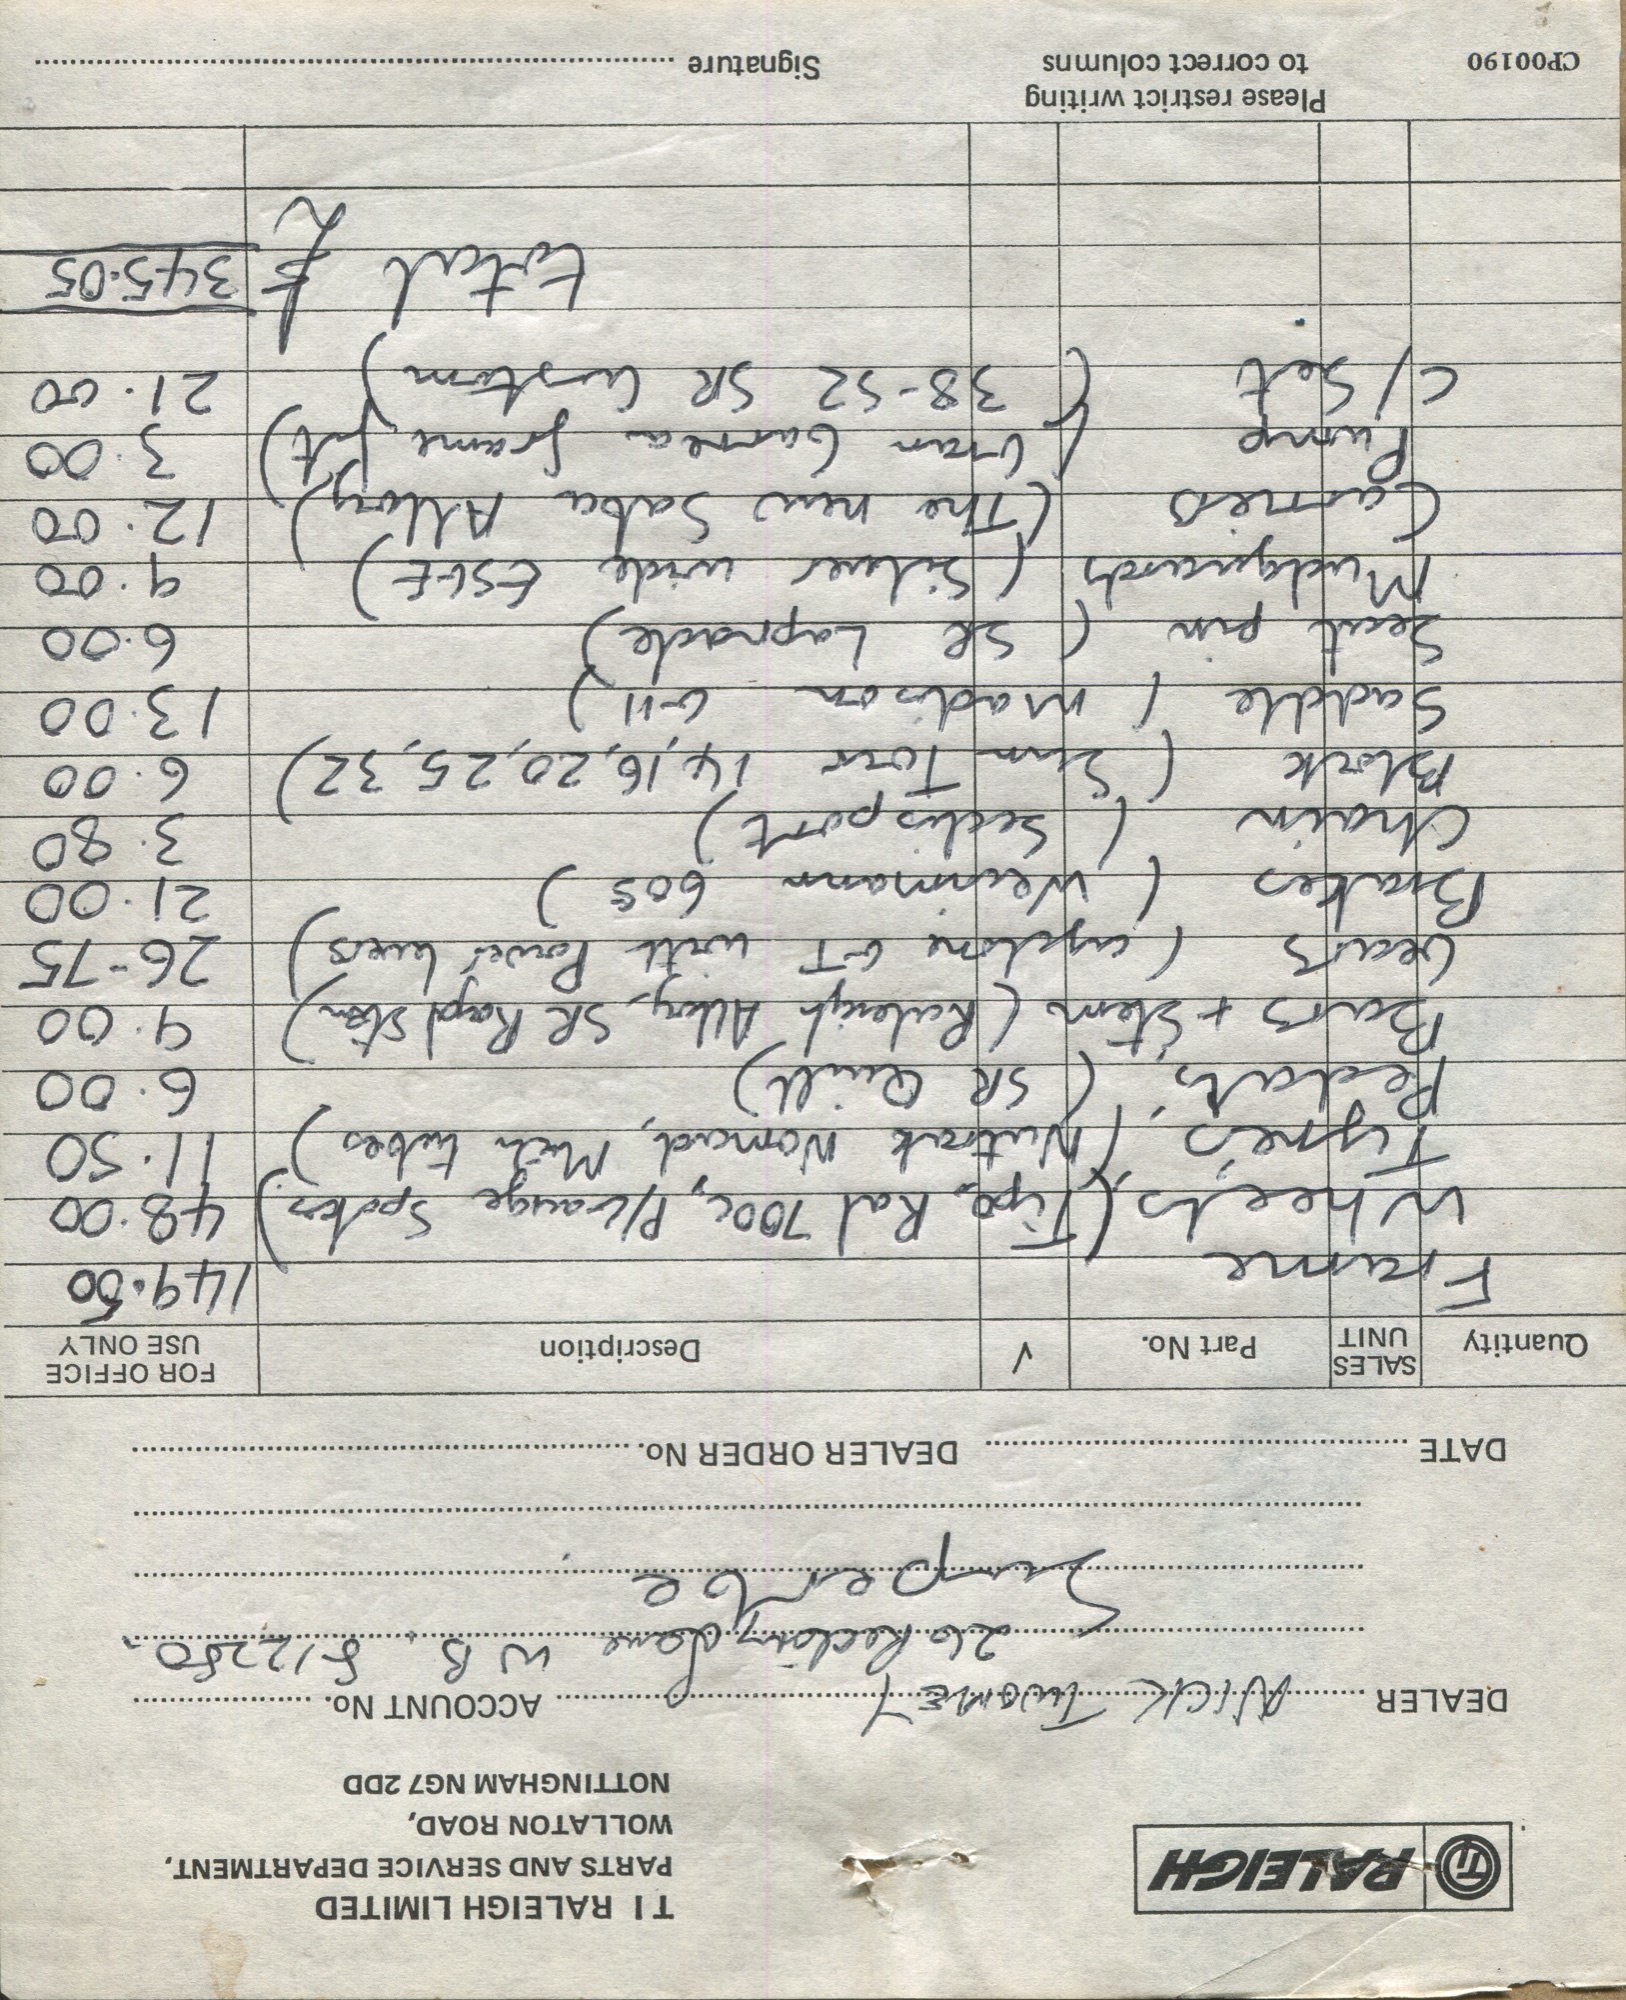 TI RALEIGH
T I RALEIGH LIMITED
PARTS AND SERVICE DEPARTMENT,
WOLLATON ROAD,
NOTTINGHAM NG7 2DD
DEALER NICK TWOMEY ACCOUNT No.
26 Reading Lane W B. 512250
Superbe
DATE DEALER ORDER No.
Quantity SALES UNIT Part No. √ Description FOR OFFICE USE ONLY
Frame 149.00
Wheels, (Tipo, Ral 700c, P/Gauge Spokes) 48.00
Tyres, (Nutrak Nomad, Mich tubes) 11.50
Pedals, (SR Quill) 6.00
Bars + Stem (Raleigh Alloy, SR Royal Stem) 9.00
Gears (cyclone GT with Power levers) 26-75
Brakes (Weinmann 605) 21.00
Chain (Sedisport) 3.80
Block (Sun Tour 14,16,20,25,32) 6.00
Saddle (Madison G-11) 13.00
Seat pin (SR Laprade) 6.00
Mudguards (Silver wide ESGE) 9.00
Carrier (The new Saba Alloy) 12.00
Pump (Gran Carrea frame fit) 3.00
C/Set (38-52 SR Custom) 21.00
total £ 345.05
Please restrict writing
to correct columns
CP00190 Signature